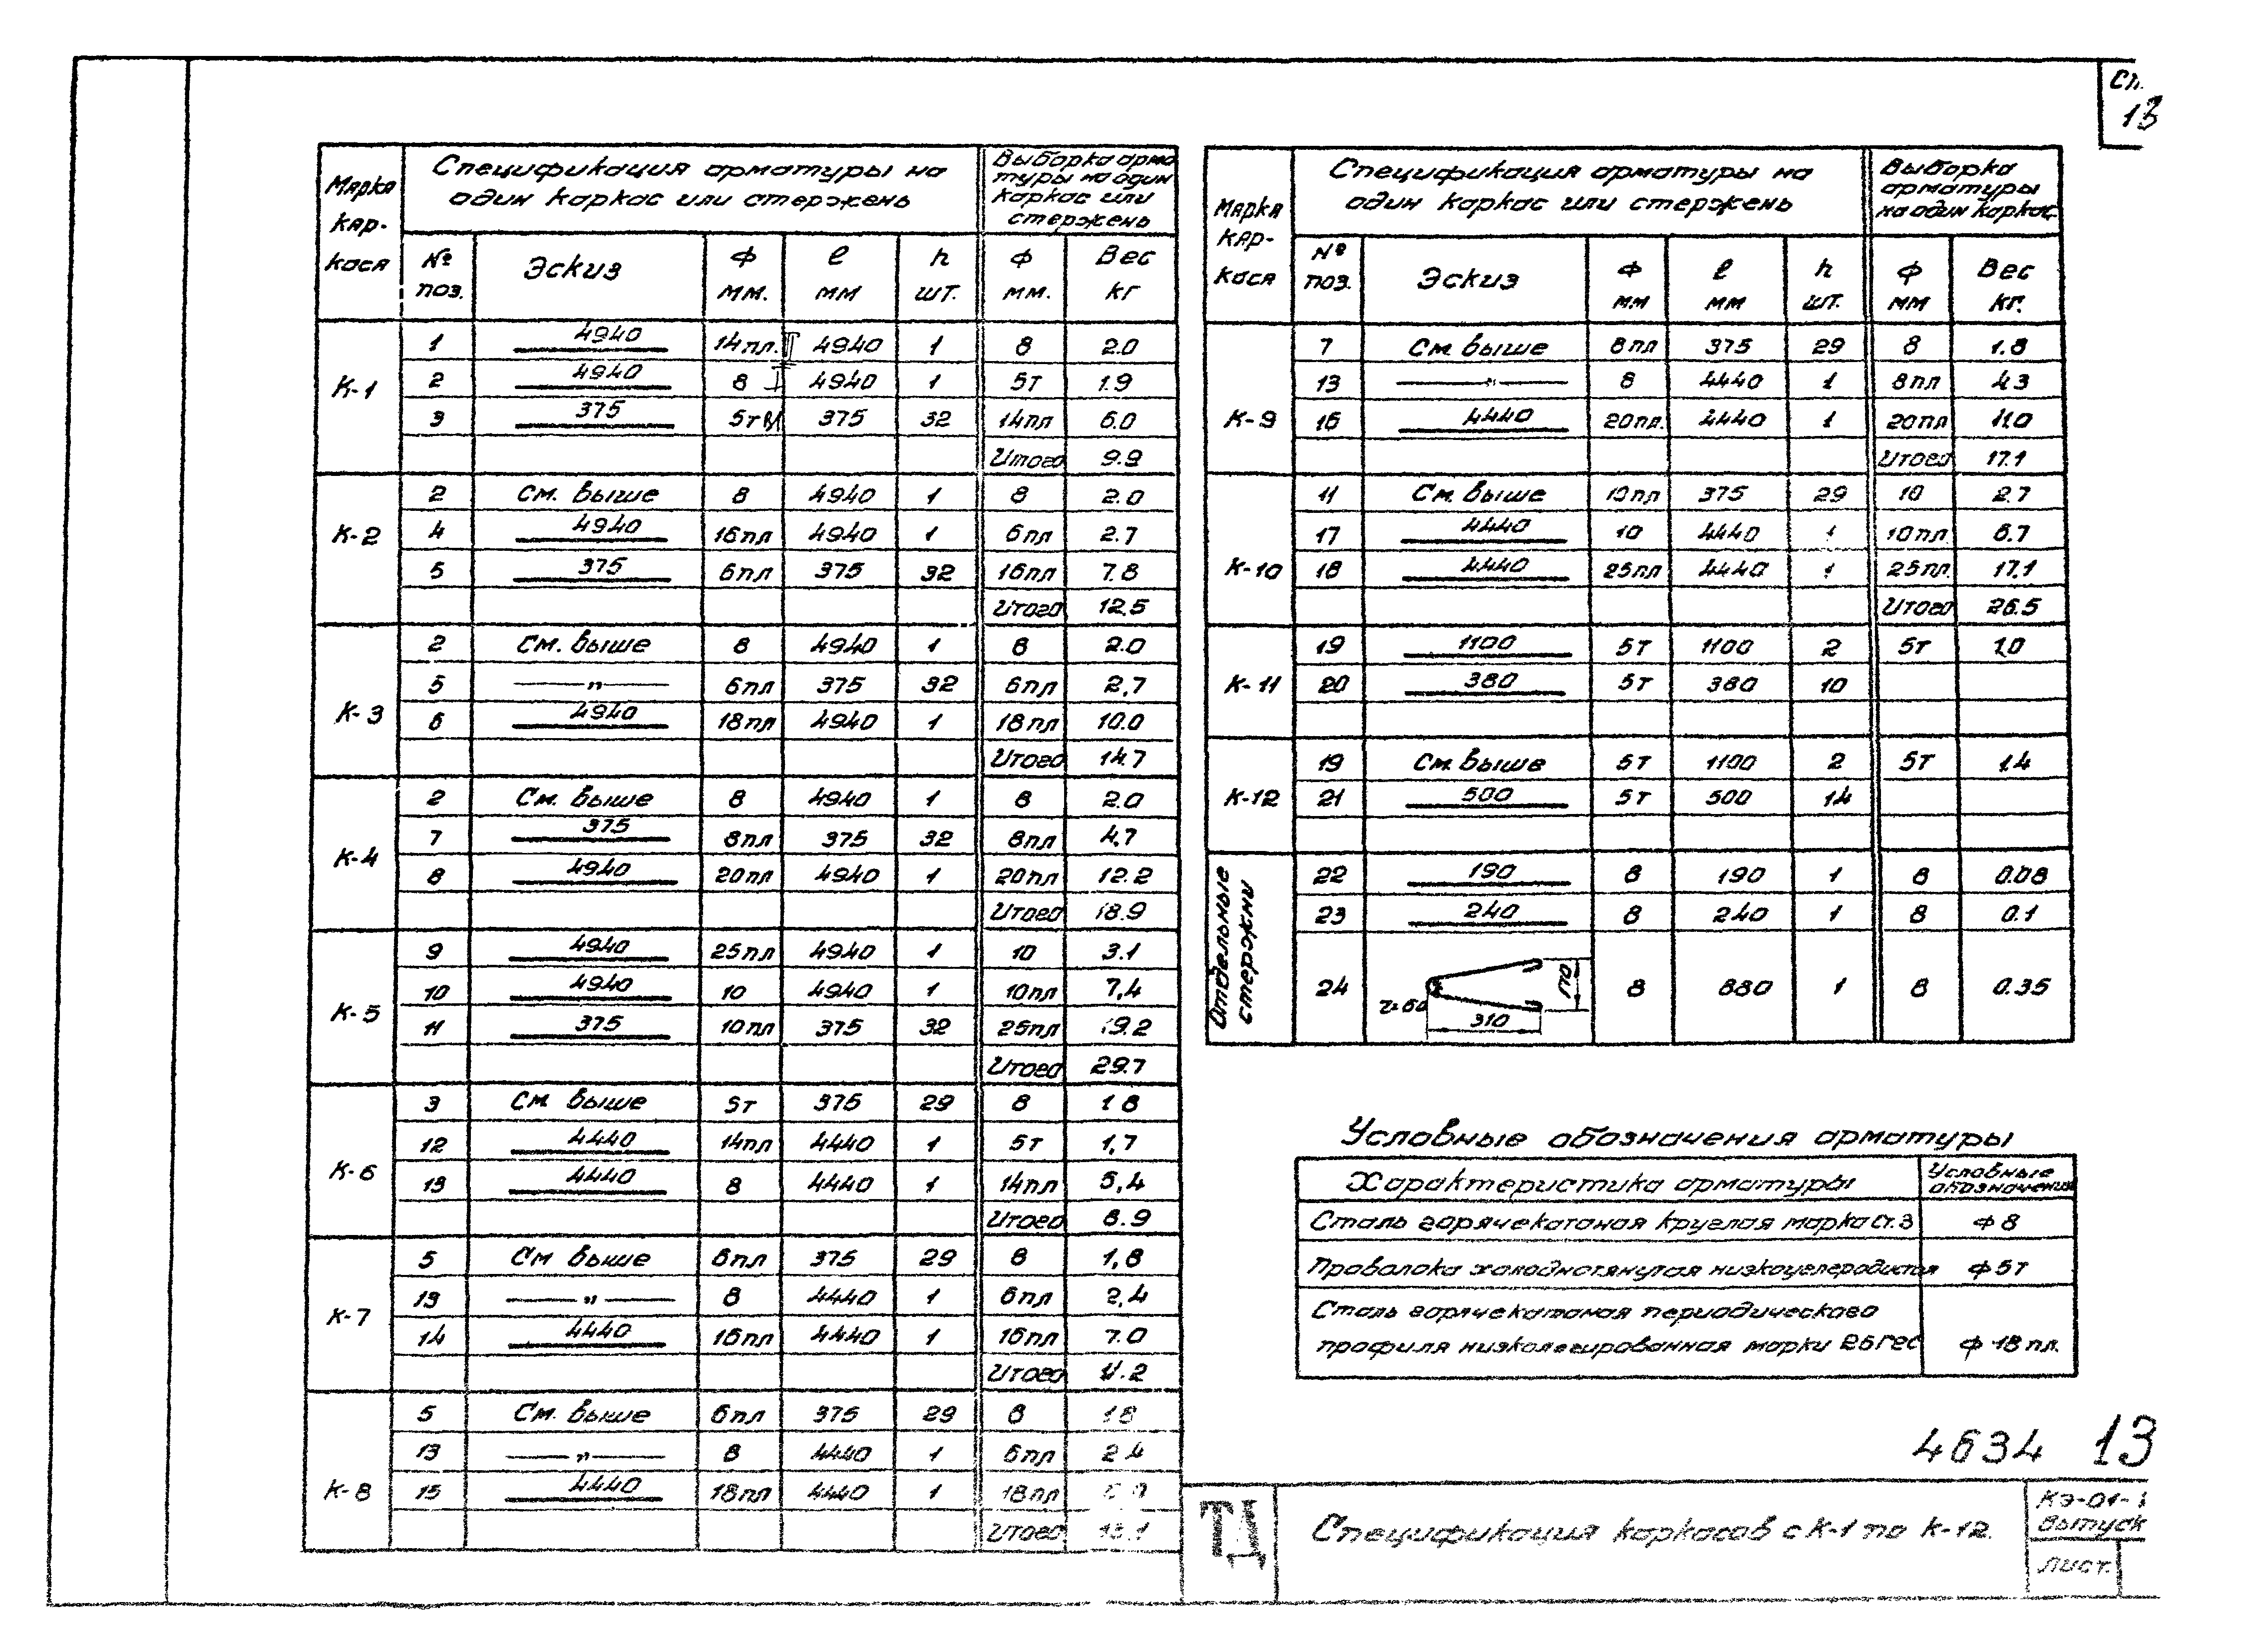 Сп.
13
Марка каркаса | Спецификация арматуры на один каркас или стержень | Выборка арматуры на один каркас или стержень
№ поз. | Эскиз | Ф мм. | ℓ мм | n шт. | Ф мм. | Вес кг
К-1
1 | 4940 | 14пл. | 4940 | 1 | 8 | 2.0
2 | 4940 | 8 | 4940 | 1 | 5т | 1.9
3 | 375 | 5т | 375 | 32 | 14пл | 6.0
Итого | 9.9
К-2
2 | См. выше | 8 | 4940 | 1 | 8 | 2.0
4 | 4940 | 16пл | 4940 | 1 | 6пл | 2.7
5 | 375 | 6пл | 375 | 32 | 16пл | 7.8
Итого | 12.5
К-3
2 | См. выше | 8 | 4940 | 1 | 8 | 2.0
5 | —"— | 6пл | 375 | 32 | 6пл | 2,7
6 | 4940 | 18пл | 4940 | 1 | 18пл | 10.0
Итого | 14.7
К-4
2 | См. выше | 8 | 4940 | 1 | 8 | 2.0
7 | 375 | 8пл | 375 | 32 | 8пл | 4,7
8 | 4940 | 20пл | 4940 | 1 | 20пл | 12.2
Итого | 18.9
К-5
9 | 4940 | 25пл | 4940 | 1 | 10 | 3.1
10 | 4940 | 10 | 4940 | 1 | 10пл | 7,4
11 | 375 | 10пл | 375 | 32 | 25пл | 19.2
Итого | 29.7
К-6
3 | См выше | 5т | 375 | 29 | 8 | 1 8
12 | 4440 | 14пл | 4440 | 1 | 5т | 1,7
13 | 4440 | 8 | 4440 | 1 | 14пл | 5,4
Итого | 8.9
К-7
5 | См выше | 6пл | 375 | 29 | 8 | 1,8
13 | —"— | 8 | 4440 | 1 | 6пл | 2,4
14 | 4440 | 16пл | 4440 | 1 | 16пл | 7.0
Итого | 11.2
К-8
5 | См. выше | 6пл | 375 | 29 | 8 | 1 8
13 | —"— | 8 | 4440 | 1 | 6пл | 2 4
15 | 4440 | 18пл | 4440 | 1 | 18пл
Итого | 13.1
Марка каркаса | Спецификация арматуры на один каркас или стержень | Выборка арматуры на один каркас.
№ поз. | Эскиз | Ф мм | ℓ мм | n шт. | Ф мм | Вес кг.
К-9
7 | См. выше | 8пл | 375 | 29 | 8 | 1.8
13 | —"— | 8 | 4440 | 1 | 8пл | 4.3
16 | 4440 | 20пл. | 4440 | 1 | 20пл | 11.0
Итого | 17.1
К-10
11 | См. выше | 10пл | 375 | 29 | 10 | 2.7
17 | 4440 | 10 | 4440 | 1 | 10пл. | 6.7
18 | 4440 | 25пл | 4440 | 1 | 25пл. | 17.1
Итого | 26.5
К-11
19 | 1100 | 5т | 1100 | 2 | 5т | 1.0
20 | 380 | 5т | 380 | 10
К-12
19 | См. выше | 5т | 1100 | 2 | 5т | 1.4
21 | 500 | 5т | 500 | 14
Отдельные стержни
22 | 190 | 8 | 190 | 1 | 8 | 0.08
23 | 240 | 8 | 240 | 1 | 8 | 0.1
24 | r=60 310 170 | 8 | 880 | 1 | 8 | 0.35
Условные обозначения арматуры
Характеристика арматуры | Условные обозначения
Сталь горячекатаная круглая марка Ст. 3 | ф 8
Проволока холоднотянутая низкоуглеродистая | ф 5т
Сталь горячекатаная периодического
профиля низколегированная марки 25ГС | ф 18 пл.
4634 13
ТД
Спецификация каркасов с К-1 по К-12.
КЭ-01-
Выпуск
Лист.